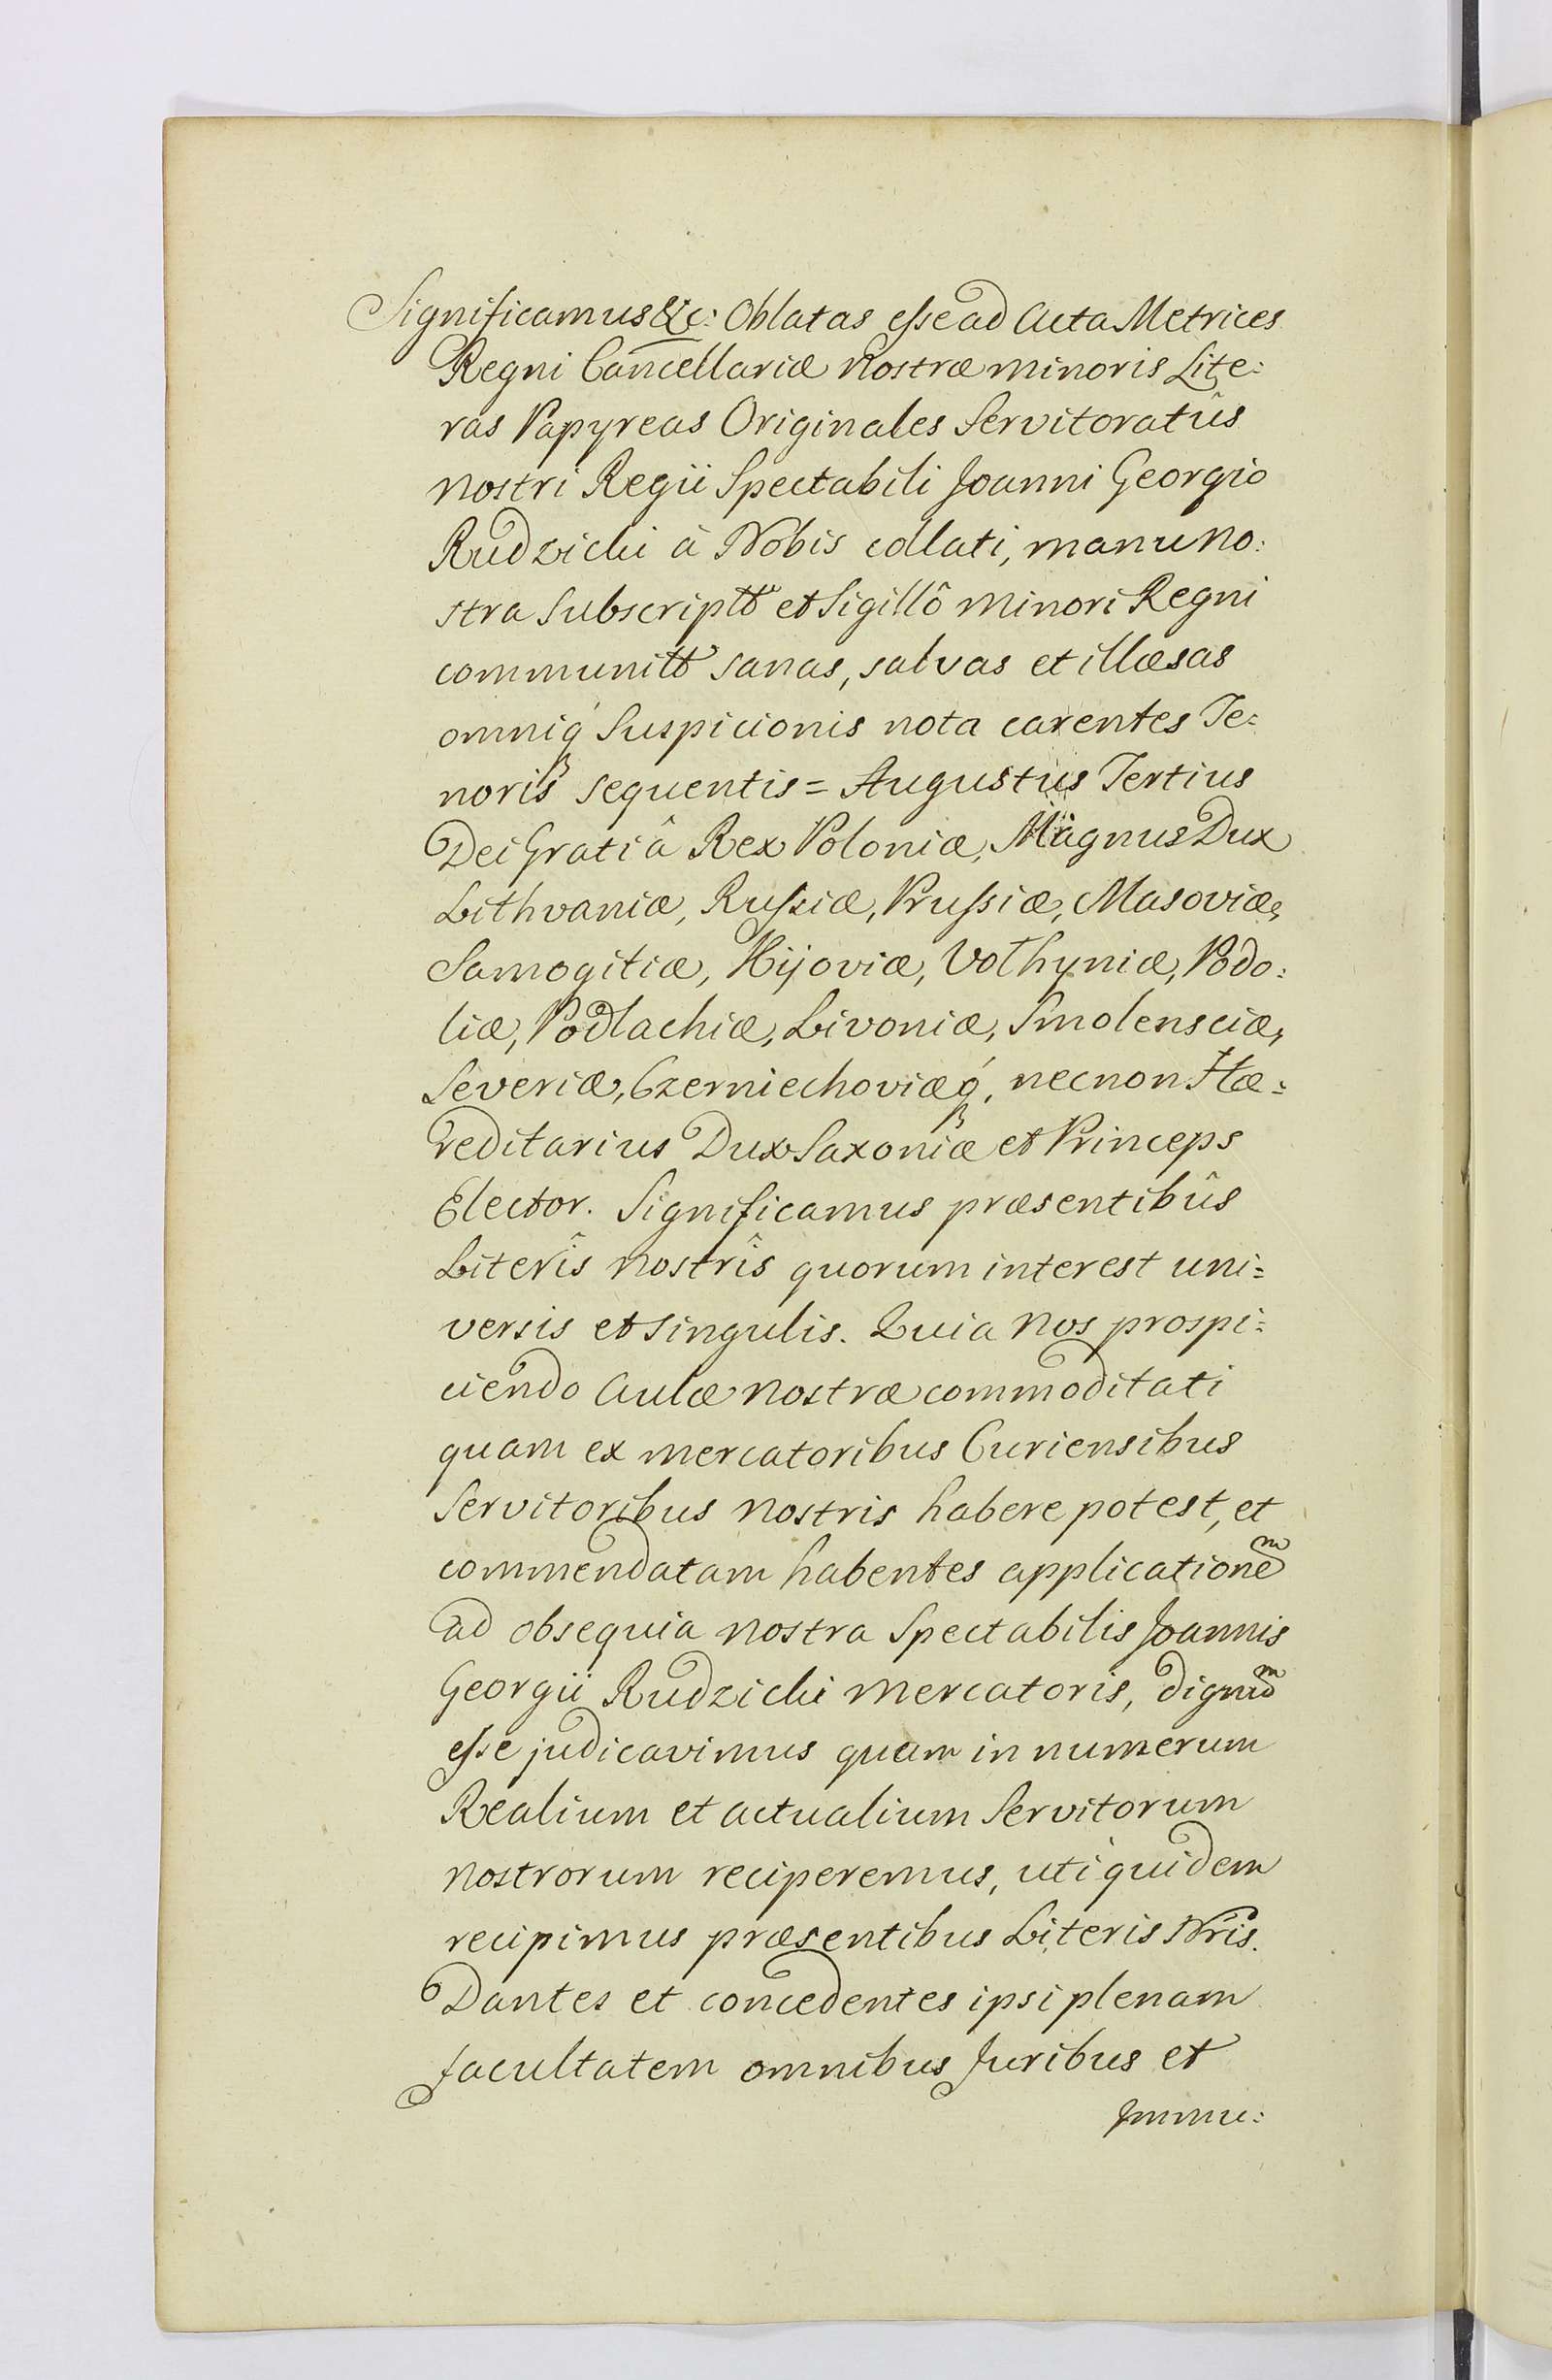 Significamus &c: Oblatas esse ad Acta Metrices
Regni Cancellariæ Nostræ minoris Lite:
ras Papyreas Originales Servitoratûs
nostri Regii Spectabili Joanni Georgio
Rudzicki à Nobis collati, manu no:
stra subscriptas et Sigillô minori Regni
communitas sanas, salvas et illæsas
omniq́ suspicionis nota carentes Te=
noris sequentis = Augustus Tertius
Dei Gratiâ Rex Poloniæ, Magnus Dux
Lithvaniæ, Russiæ, Prussiæ, Masoviæ,
Samogitiæ, Kijoviæ, Volhyniæ, Podo:
liæ, Podlachiæ, Livoniæ, Smolensciæ,
Severiæ, Czerniechoviæq́, necnon Hæ=
reditarius Dux Saxoniæ et Princeps
Elector. Significamus præsentibûs
Literîs nostrîs quorum interest uni=
versis et singulis. Quia nos prospi=
ciendo Aulæ nostræ commoditati
quam ex mercatoribus Curiensibus
Servitoribus nostris habere potest, et
commendatam habentes applicationem
ad obsequia nostra Spectabilis Joannis
Georgii Rudzicki mercatoris, dignum
esse judicavimus quam in numerum
Realium et actualium Servitorum
nostrorum reciperemus, uti quidem
recipimus præsentibus Literis Nris.
Dantes et concedentes ipsi plenam
facultatem omnibus Juribus et
Immu: